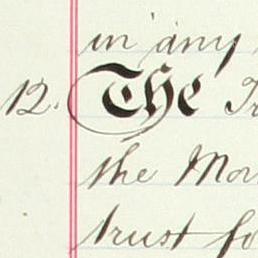 in any
12. The Tr
the Mor
trust fo